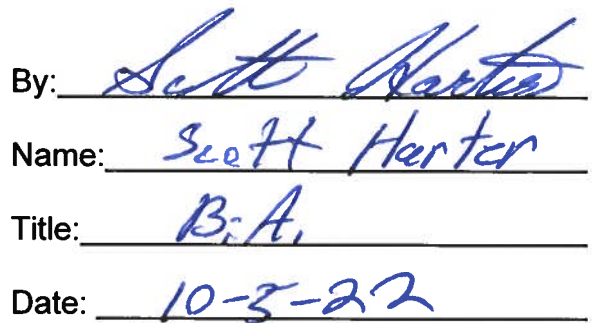 By: Scott Harter
Name: Scott Harter
Title: B.A.
Date: 10-5-22